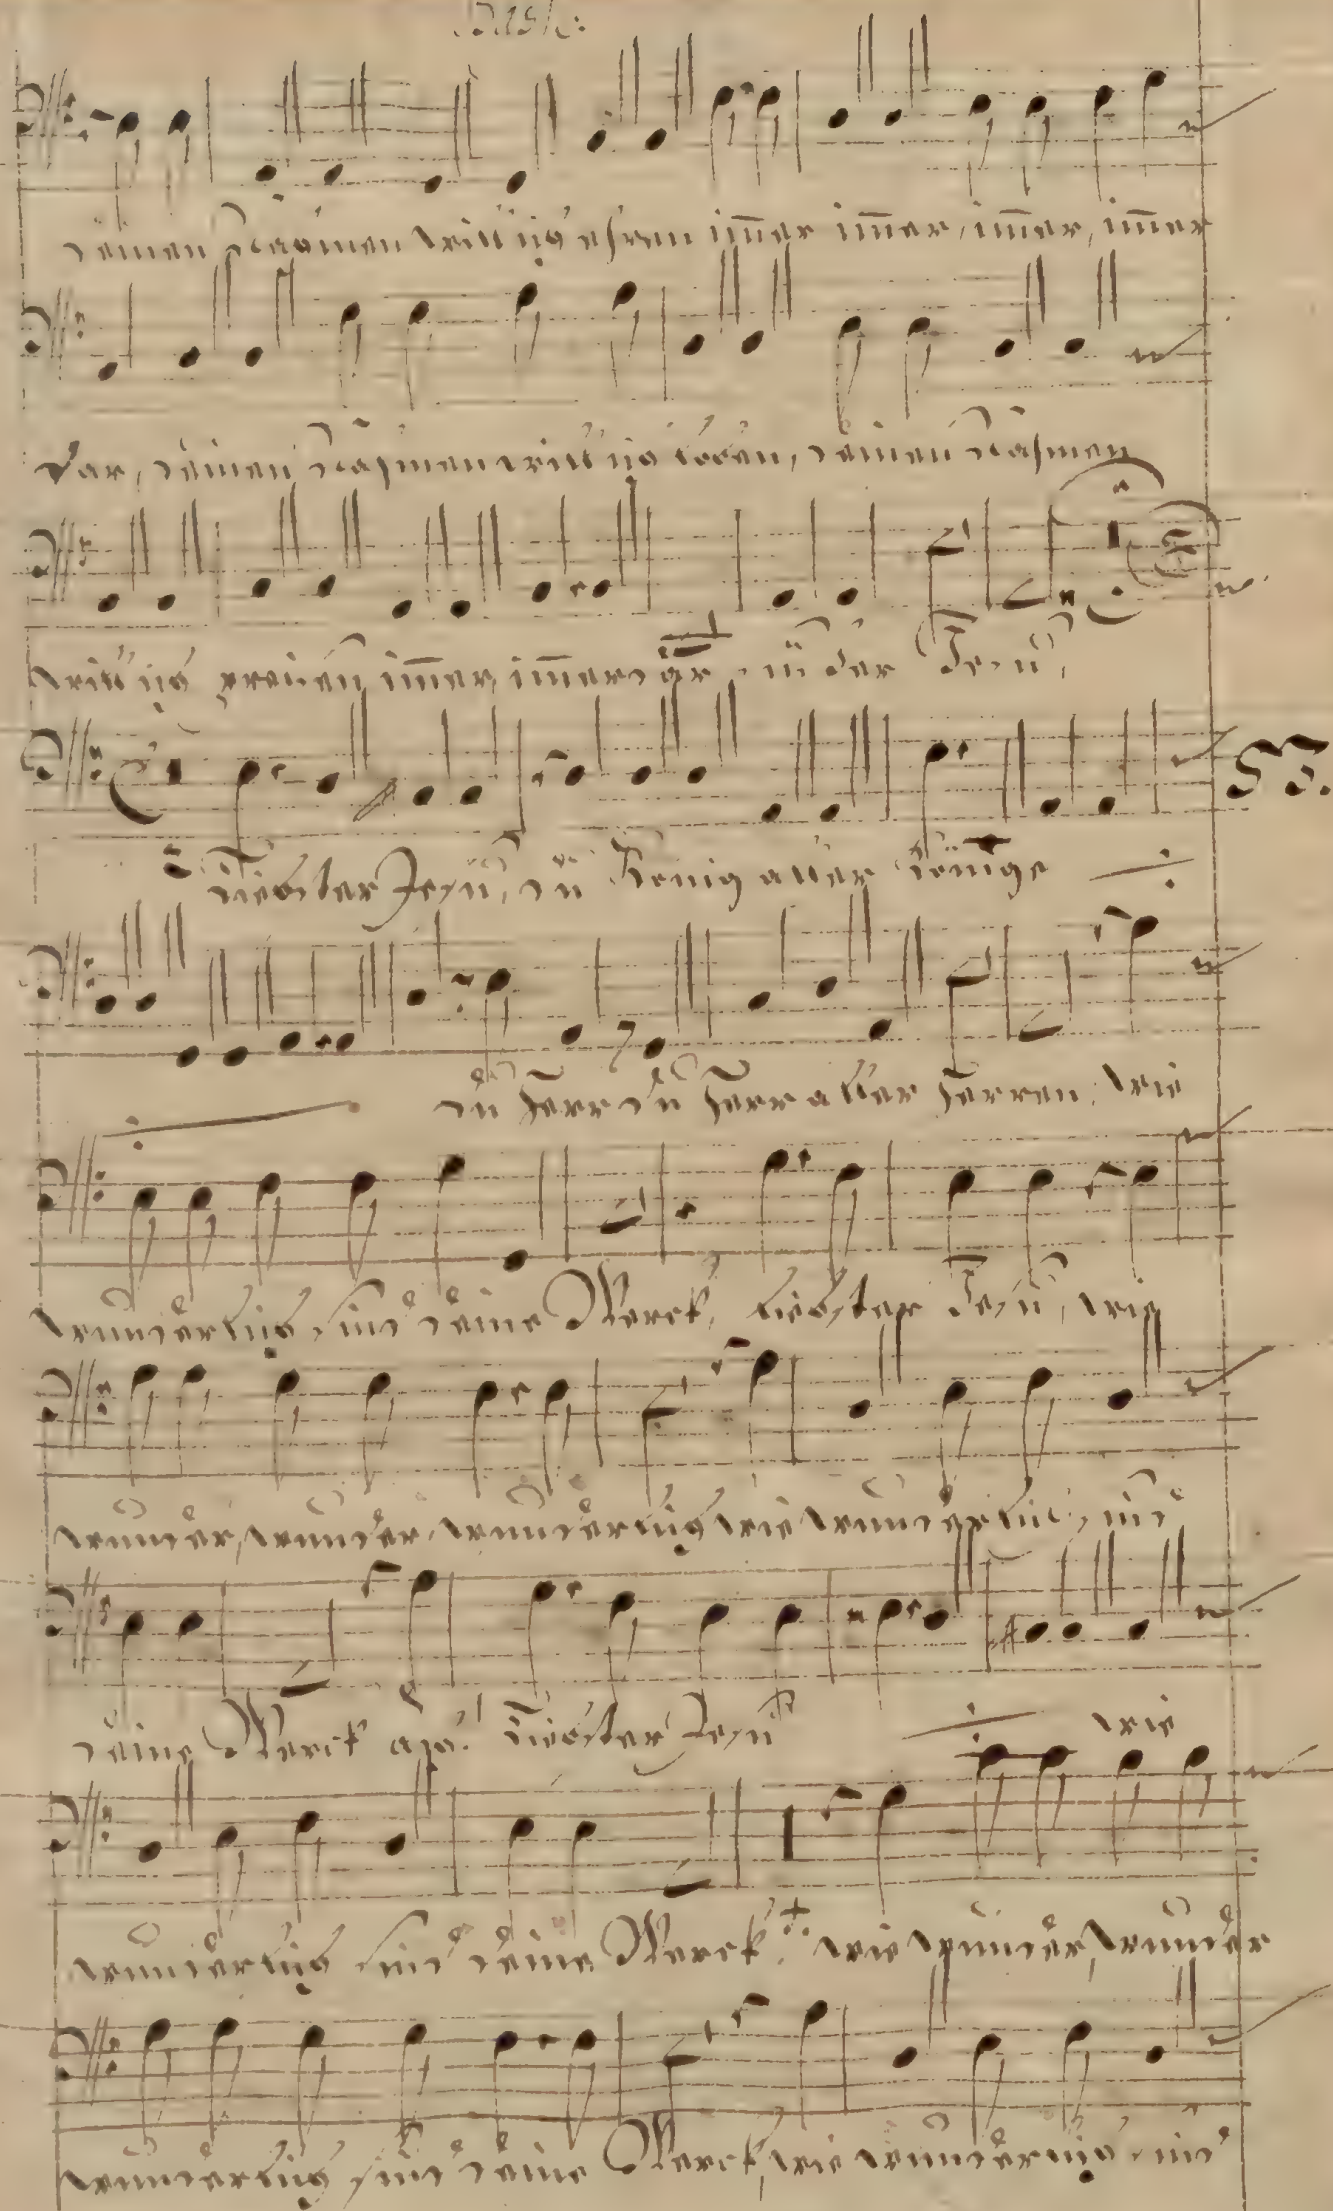 Bass:
deinen Nahmen will ich ehren im̅er im̅er, im̅er, im̅er
dar, deinen Nahmen will ich loben, deinen Nahmen
will ich preisen im̅er im̅erdar, du der Jesu,
Liebster Jesu, du König aller Könige
du Herr du Herr aller Herren, wie
wunderlich sind deine Werck, liebster Jesu, wie
wunder, wunder, wunderlich wie wunderlich sind
deine Werck aha! Liebster Jesu wie
wunderlich sind deine Werck, wie wunder, wunder
wunderlich sind deine Werck, wie wunderlich sind